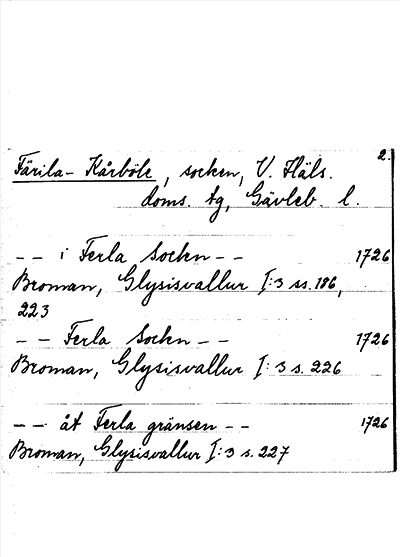 2.
Färila-Kårböle, socken, V. Häls.
doms. tg, Gävleb. l.
-- i Ferla Socken -- 1726
Broman, Glysisvallur I:3 ss. 186,
223
-- Ferla Sockn -- 1726
Broman, Glysisvallur I:3 s. 226
-- åt Ferla gränsen -- 1726
Broman, Glysisvallur I:3 s. 227